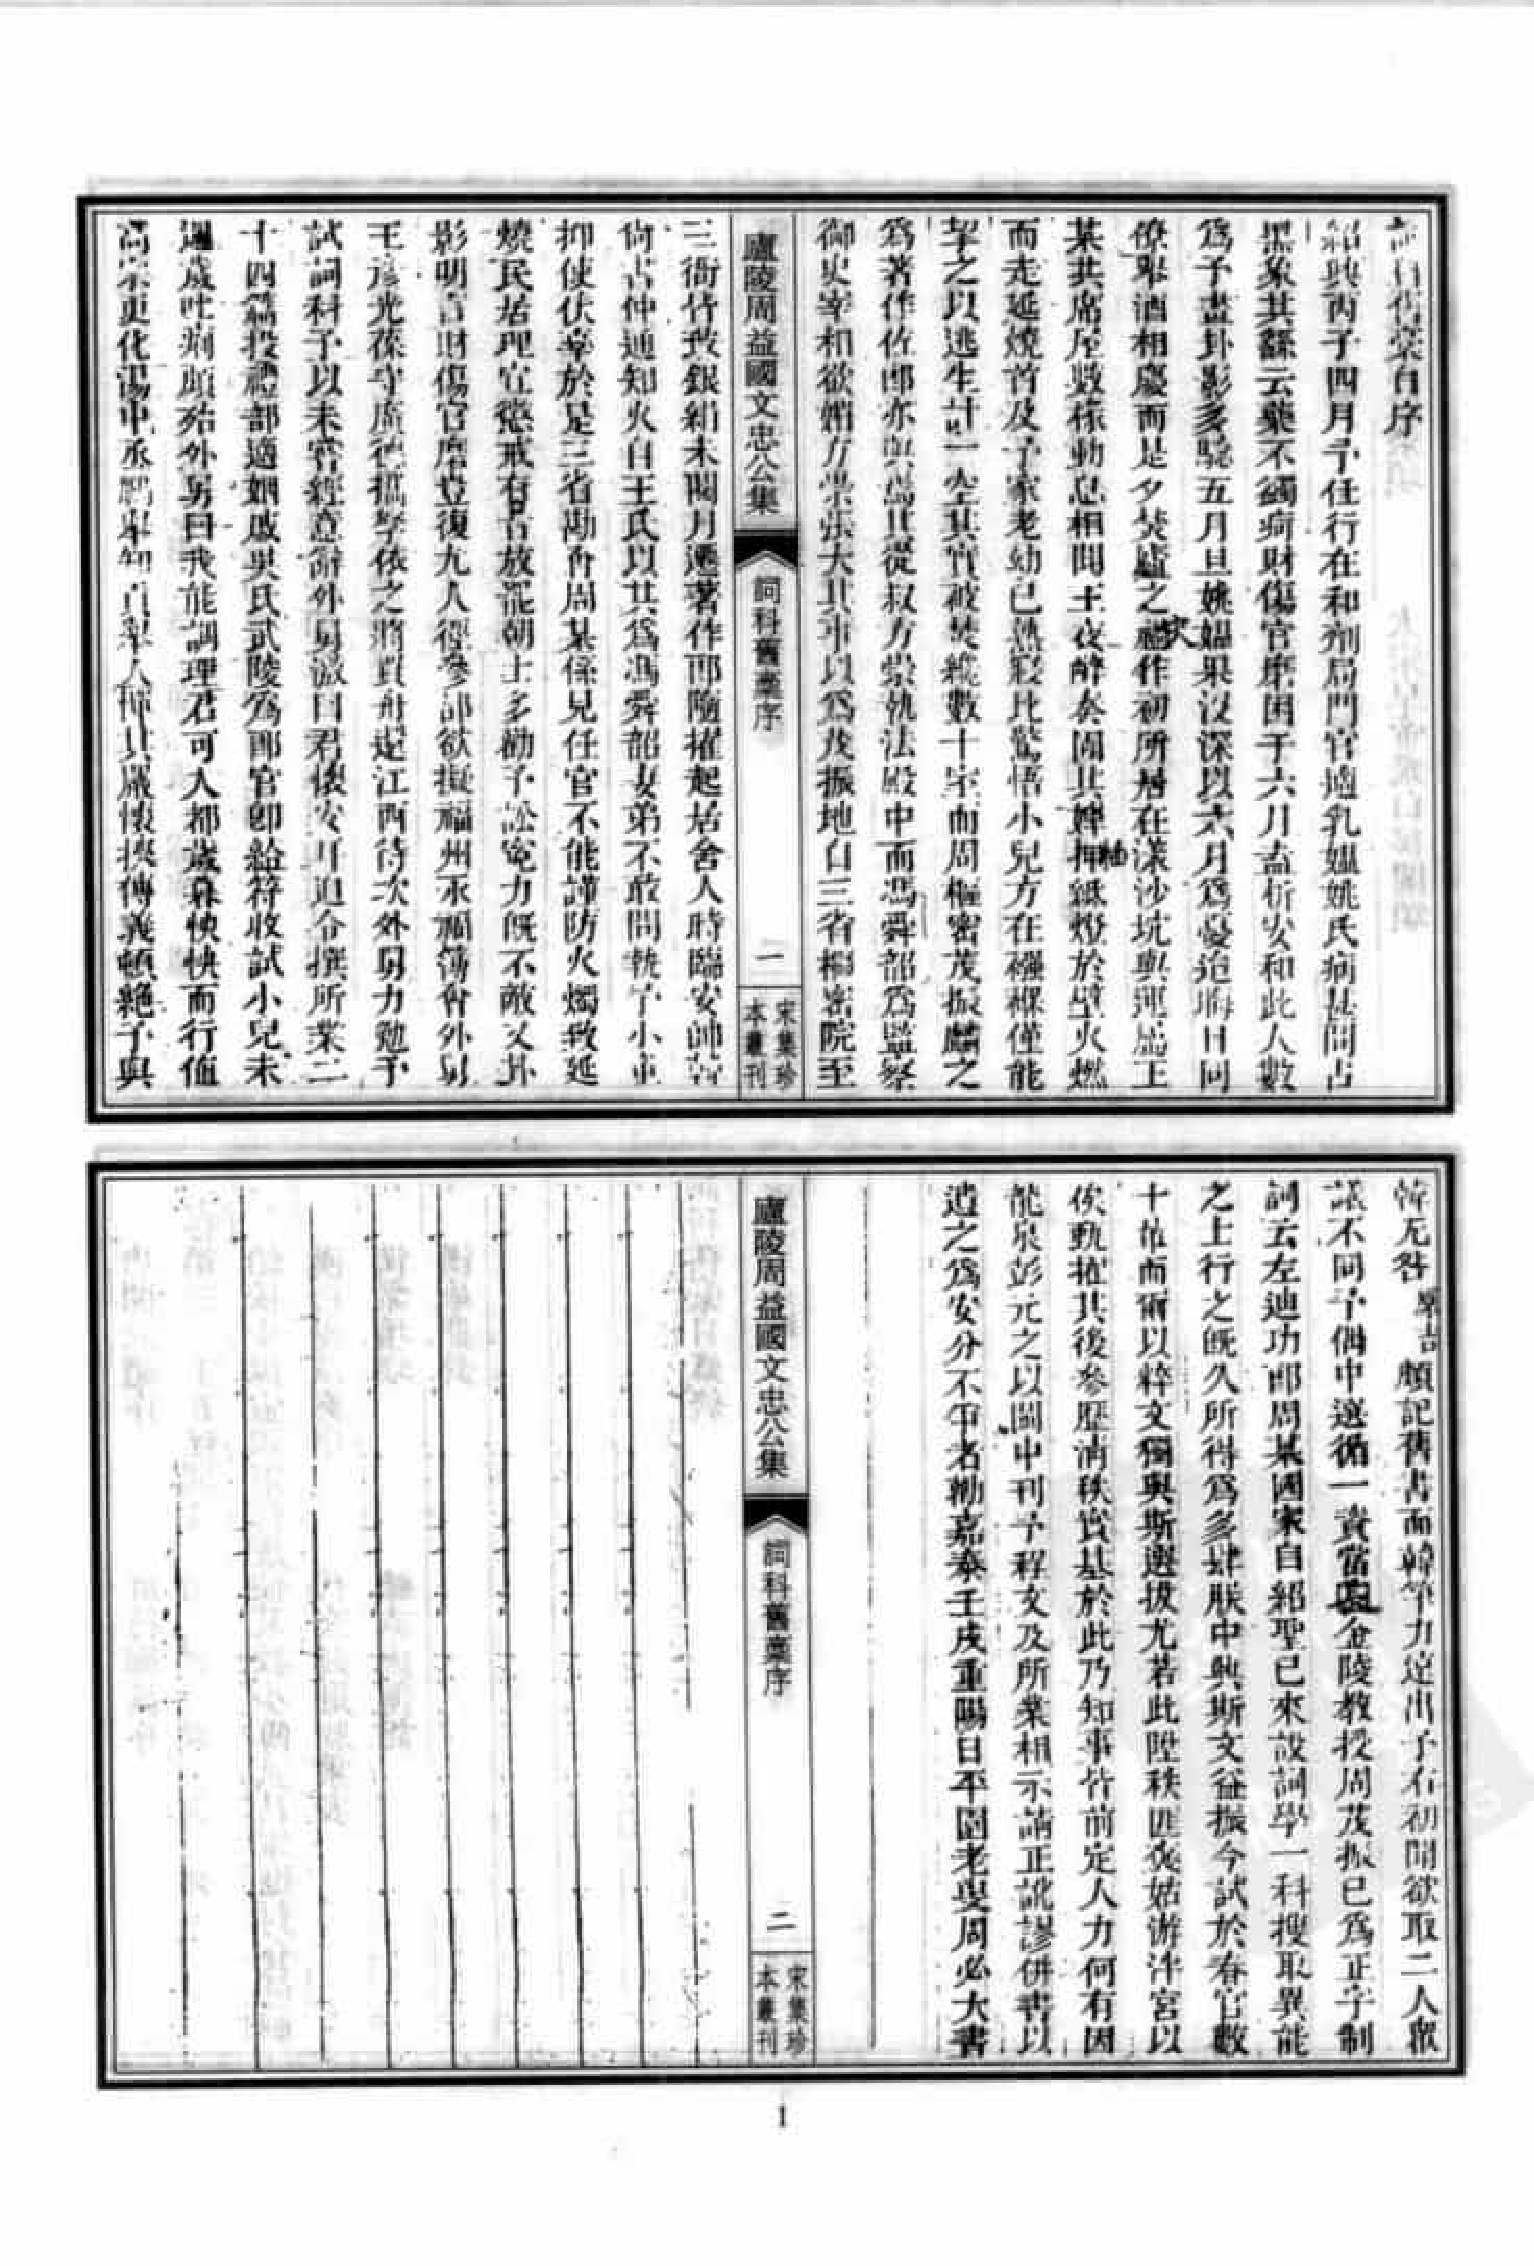 詞科舊稾自序
紹興丙子四月予任行在和劑局門官適乳媼姚氏病甚問占
黑象其繇云藥不蠲疴財傷官磨困于六月盍祈安和此人數
爲予畫卦影多驗五月旦姚媼果沒深以六月爲憂迨晦日同
僚聚酒相慶而是夕焚廬之災作初所居在漾沙坑與運屬王
某共席屋數椽動息相聞王夜醉奏圊其婢插紙燈於壁火燃
而走延燒首及予家老幼已熟寢比驚悟小兒方在襁褓僅能
挈之以逃生計一空其實被焚纔數十家而周樞密茂振麟之
爲著作佐郎亦與焉其從叔方崇執法殿中而馮舜韶爲監察
御史宰相欲媚方崇張大其事以爲茂振地自三省樞密院至
廬陵周益國文忠公集
詞科舊稾序
一
宋集珍
本叢刊
三衙皆致銀絹未閱月遷著作郎隨擢起居舍人時臨安帥韓
尚書仲通知火自王氏以其爲馮舜韶妻弟不敢問執予小吏
抑使伏辜於是三省勘會周某係見任官不能謹防火燭致延
燒民居理宜懲戒有旨放罷朝士多勸予訟寃力旣不敵又卦
影明言財傷官磨豈復尤人徑參部欲擬福州永福簿會外舅
王彥光葆守廣德攜孥依之將買舟還江西待次外舅力勉予
試詞科予以未嘗經意辭外舅激曰君懷安耳迫令撰所業二
十四篇投禮部適姻戚吳氏武陵爲郎官卽給符收試小兒未
週歲吐痢頗殆外舅曰我能調理君可入都歲暮怏怏而行値
高宗更化湯中丞鵬舉知貢舉人憚其嚴懷挾傳義頓絕予與
韓无咎元吉頗記舊書而韓筆力遠出予右初閱欲取二人衆
議不同予偶中選循一資當與金陵教授周茂振已爲正字制
詞云左迪功郎周某國家自紹聖已來設詞學一科搜取異能
之士行之旣久所得爲多肆朕中興斯文益振今試於春官數
十惟而爾以粹文獨與斯選拔尤若此陞秩匪褒姑游泮宮以
俟勤擢其後參歷淸秩實基於此乃知事皆前定人力何有因
龍泉彭元之以閩中刊予程文及所業相示請正訛謬併書以
遺之爲安分不爭者勸嘉泰壬戌重陽日平園老叟周必大書
廬陵周益國文忠公集
詞科舊稾序
二
宋集珍
本叢刊
1